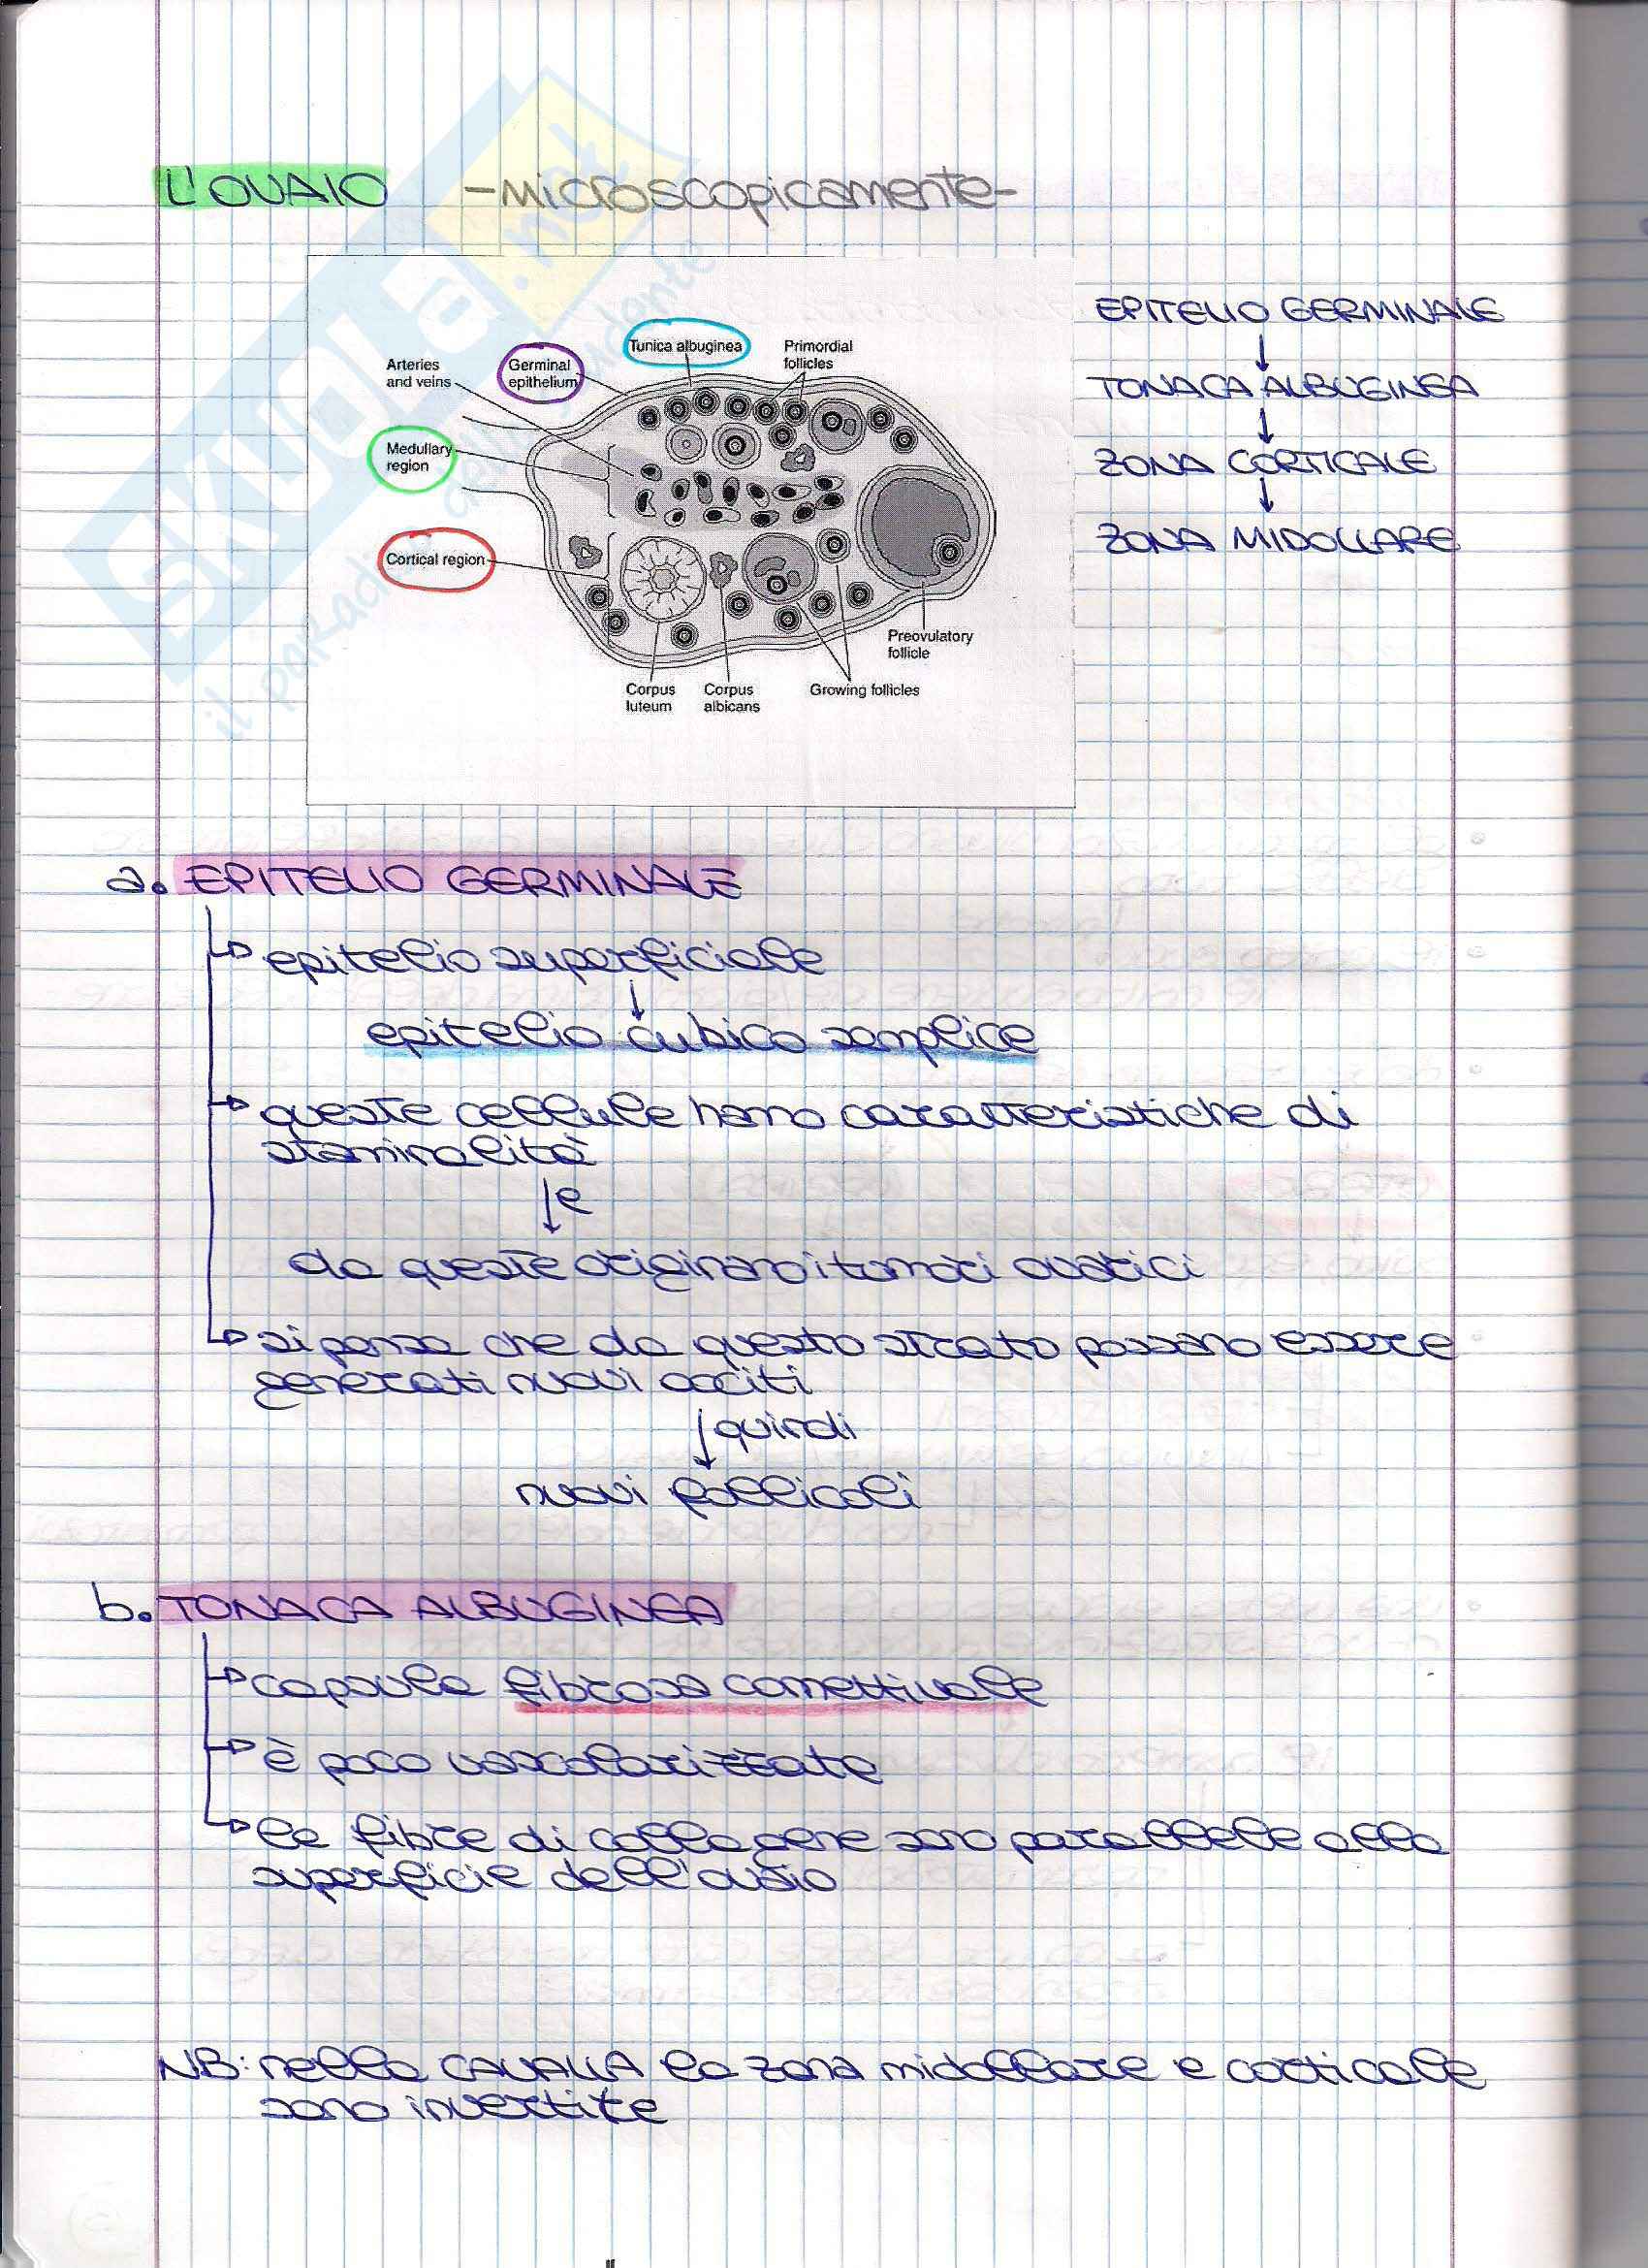 L'OVAIO -microscopicamente-
SKUOLA.net
il paradiso dello studente
Tunica albuginea
Primordial
follicles
Arteries
and veins
Germinal
epithelium
Medullary
region
Cortical region
Preovulatory
follicle
Corpus
luteum
Corpus
albicans
Growing follicles
EPITELIO GERMINALE
↓
TONACA ALBUGINEA
↓
ZONA CORTICALE
↓
ZONA MIDOLLARE
a. EPITELIO GERMINALE
epitelio superficiale
↓
epitelio cubico semplice
queste cellule hanno caratteristiche di
staminalità
↓ e
da queste originano i tumori ovarici
si pensa che da questo strato possano essere
generati nuovi oociti
↓ quindi
nuovi follicoli
b. TONACA ALBUGINEA
capsula fibrosa connettivale
è poco vascolarizzata
le fibre di collagene sono parallele alla
superficie dell'ovaio
NB: nella CAVALLA la zona midollare e corticale
sono invertite